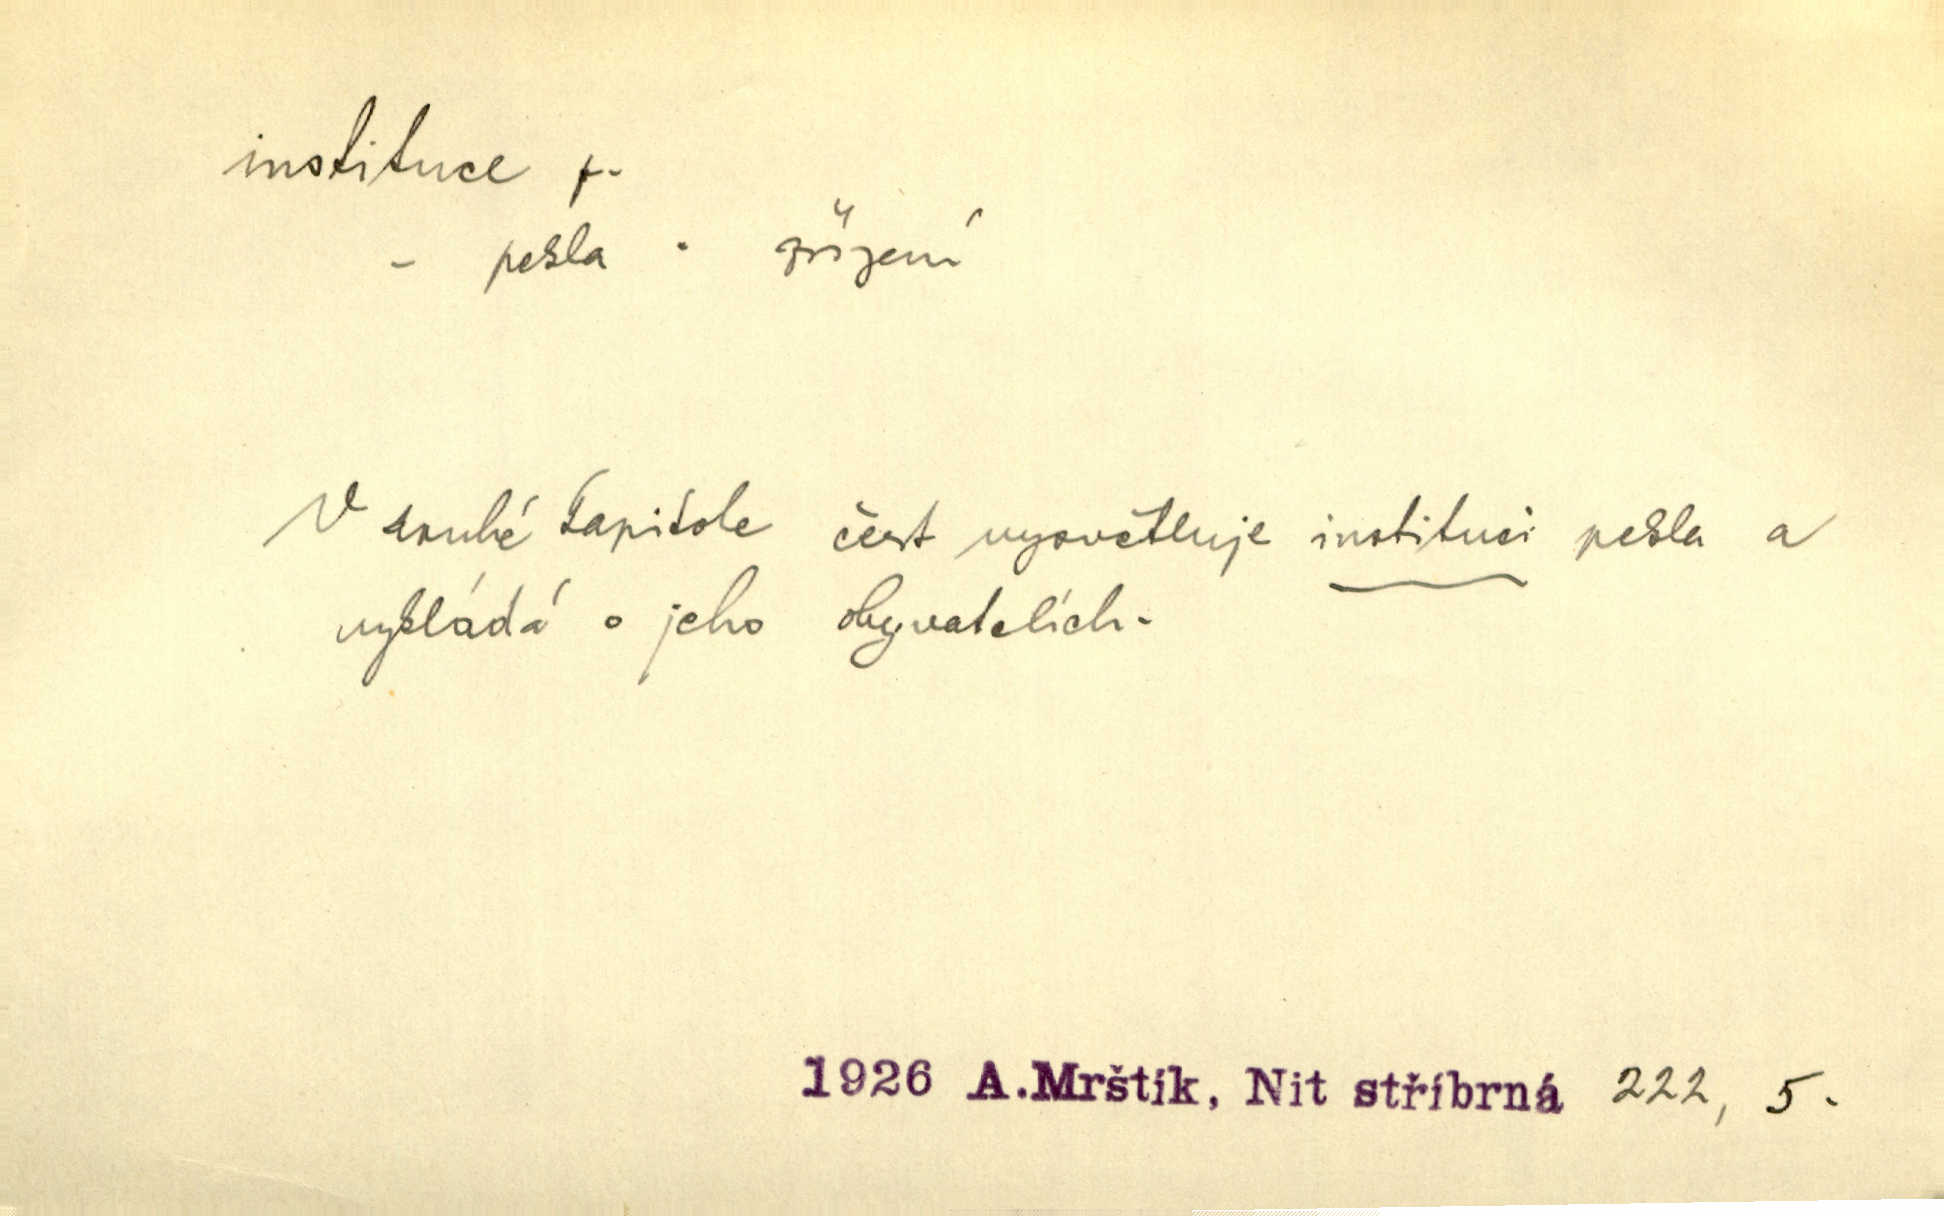 instituce f.
- pekla · zřízení
V druhé kapitole čert vysvětluje instituci pekla a
vykládá o jeho obyvatelích.
1926 A.Mrštík, Nit stříbrná 222, 5.